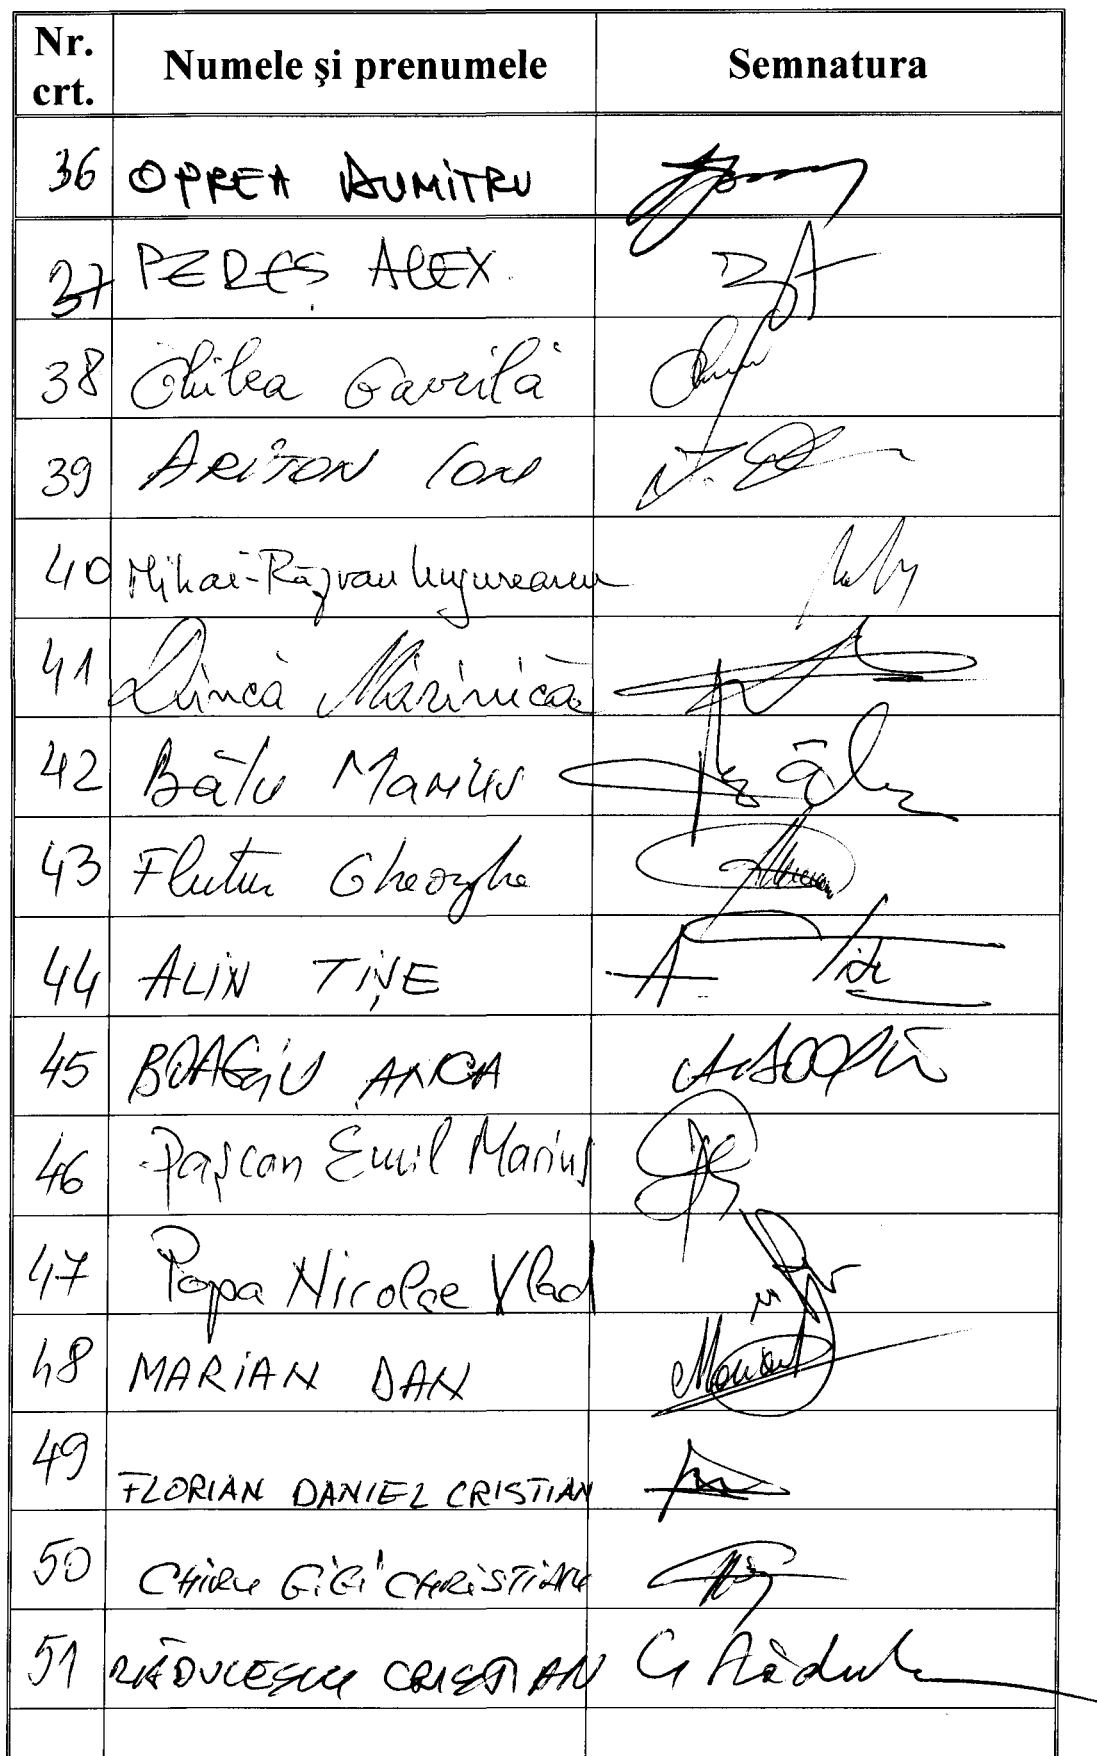 Nr. crt. Numele și prenumele Semnatura
36 OPREA DUMITRU
37 PEREȘ ALEX.
38 Ghilea Gavrilă
39 ARITON ION
40 Mihai-Răzvan Ungureanu
41 Dincă Mărinică
42 Bâlu Marius
43 Flutur Gheorghe
44 ALIN TIȘE
45 BOAGIU ANCA
46 Pașcan Emil Marius
47 Popa Nicolae Vlad
48 MARIAN DAN Marian
49 FLORIAN DANIEL CRISTIAN
50 CHIRU GIGI CHRISTIAN
51 RĂDULESCU CRISTIAN